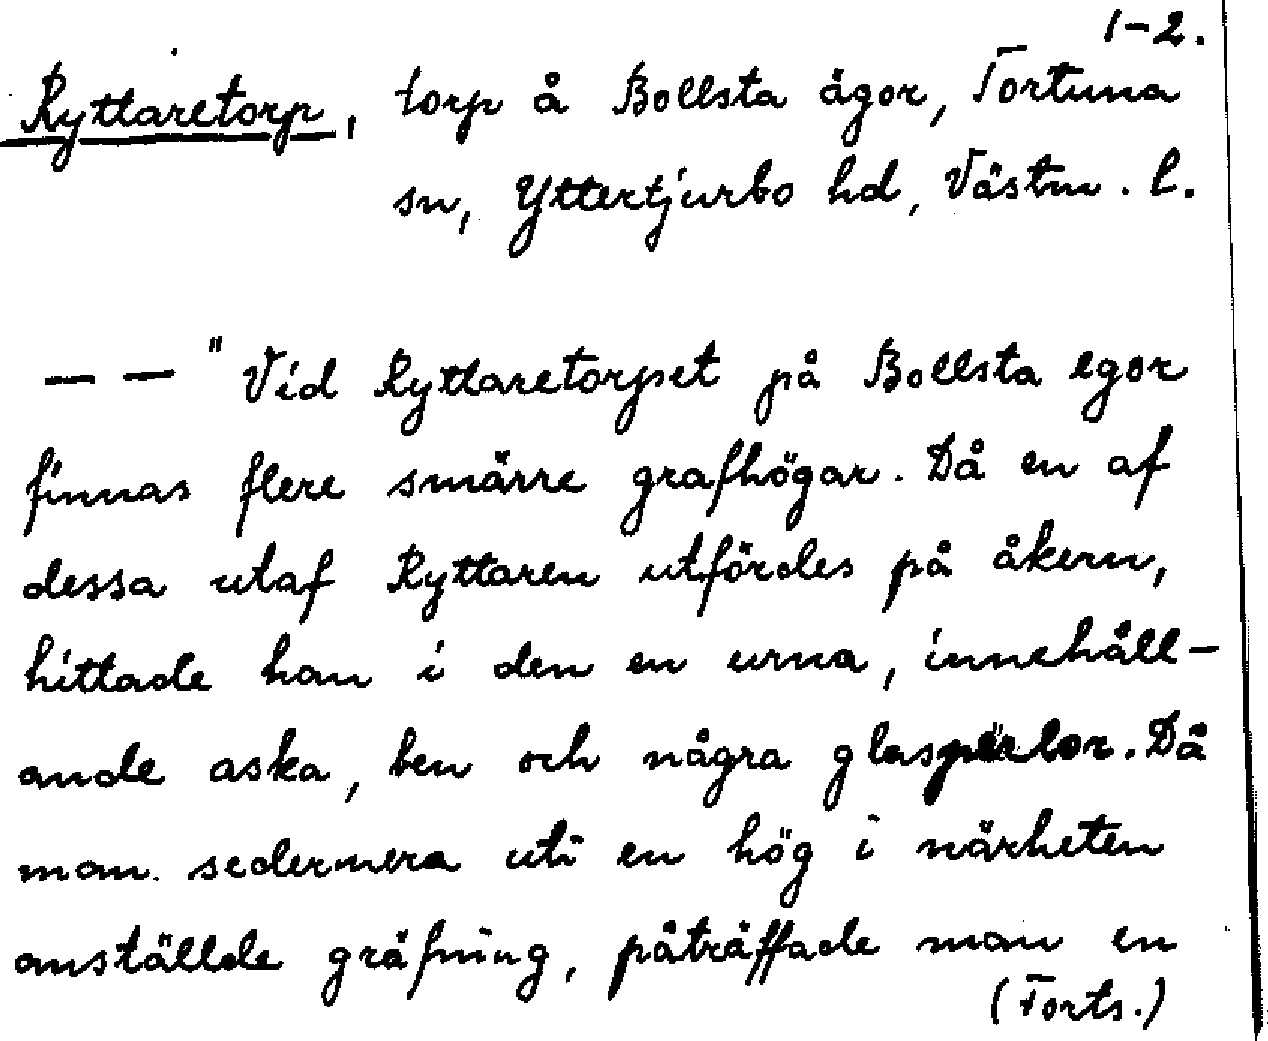 1-2.
Ryttaretorp, torp å Bollsta ägor, Tortuna
sn, Yttertjurbo hd, Västm. l.
— — "Vid Ryttaretorpet på Bollsta egor
finnas flere smärre grafhögar. Då en af
dessa utaf Ryttaren utfördes på åkern,
hittade han i den en urna, innehåll-
ande aska, ben och några glasperlor. Då
man sedermera uti en hög i närheten
anställde gräfning, påträffade man en
(Forts.)